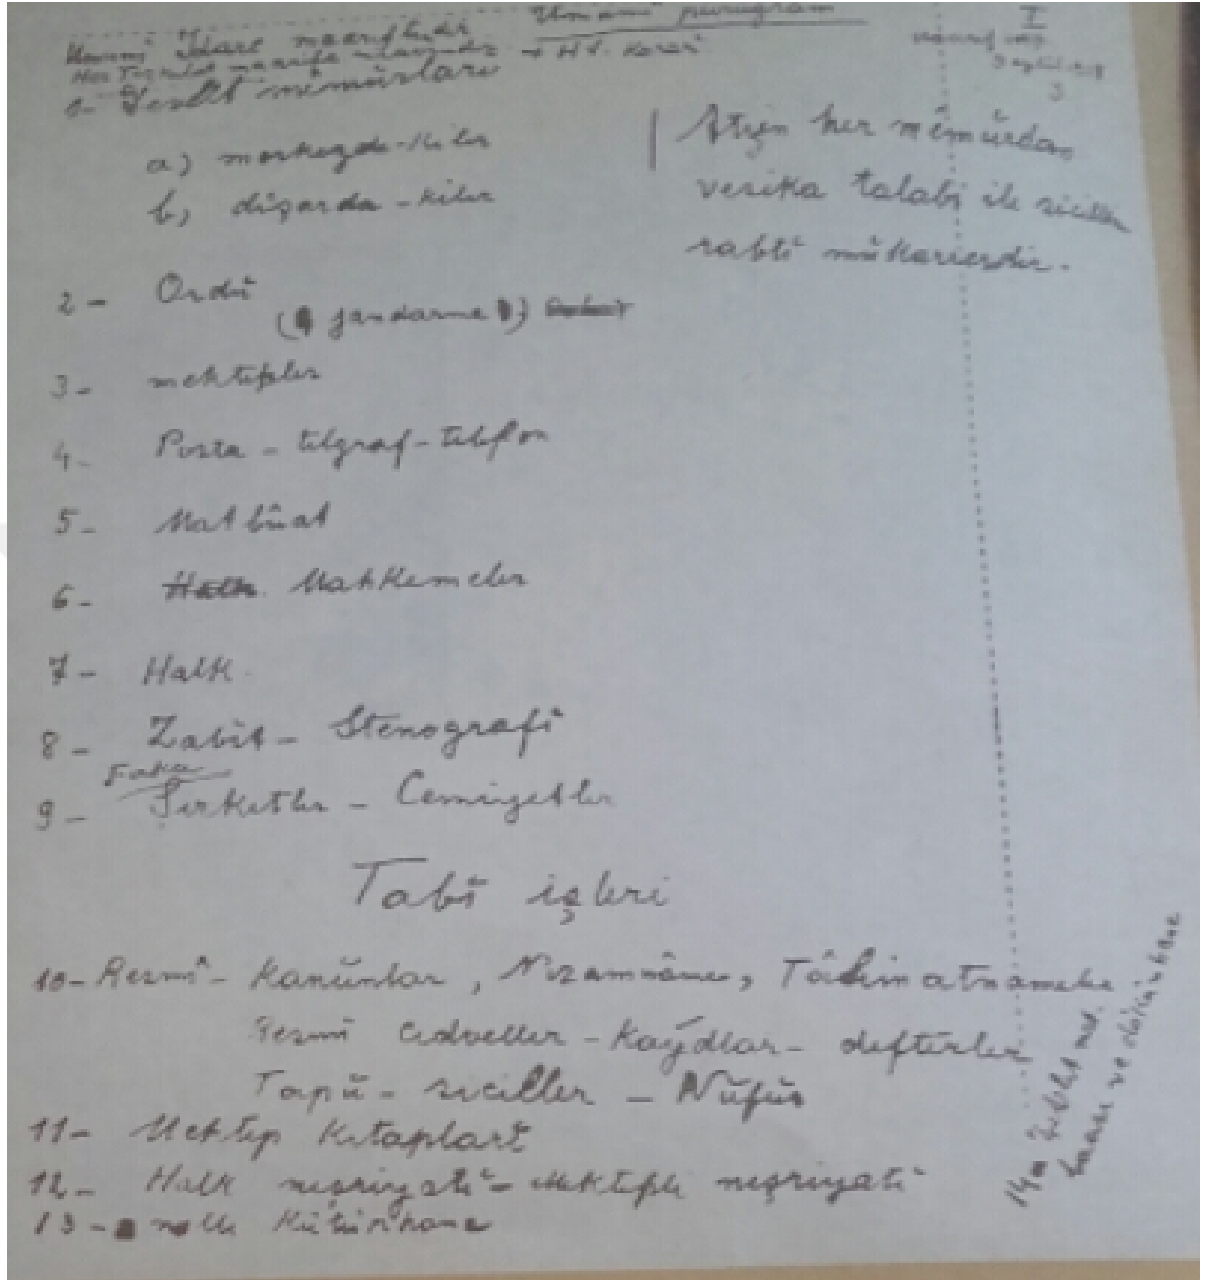 Umumî purugram
I
Umumî İdare maarif
→ HV. Kararî
3
1- Devlet mêmûrlarî
a) merkezde-kiler
b) dîşarda-kiler
Atîyen her mêmûrdan
vesika talabî ile siciller
rabtî mûkarrerdir.
2- Ordû
( jandarma )
3- mektepler
4- Posta - telgraf - telefon
5- Matbûat
6- Mahkemeler
7- Halk.
8- Zabît - Stenografî
9- Şirketler - Cemiyetler
Tabî işleri
10- Resmî - Kanûnlar, Nizamnâme,
Resmî Cedveller - Kaydlar - defterler
Tapû - siciller - Nüfûs
11- Mektep Kitaplarî
12- Halk neşriyatî - Mektepli neşriyatî
13- Kütüphane